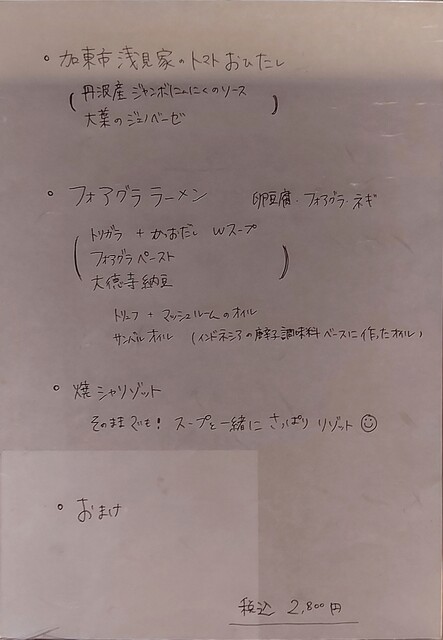 ・加東市 浅見家のトマトおひたし
(丹波産 ジャンボにんにくのソース
大葉のジェノベーゼ)
・フォアグララーメン 卵豆腐・フォアグラ・ネギ
(トリガラ + かつおだし Wスープ
フォアグラペースト
大徳寺納豆)
トリュフ + マッシュルームのオイル
サンバルオイル (インドネシアの唐辛子調味料ベースに作ったオイル)
・焼シャリゾット
そのままでも! スープと一緒にさっぱりリゾット ☺
・おまけ
税込 2,800円